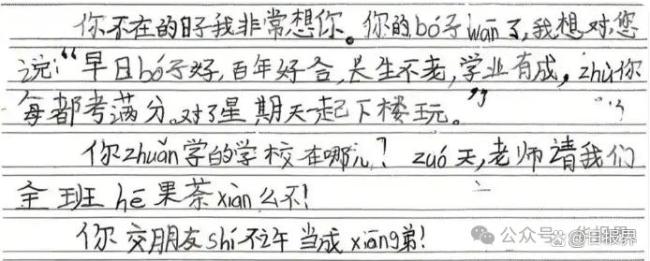 你不在的日子我非常想你。你的bó子wān了,我想对您
说:“早日bó子好,百年好合,长生不老,学业有成,zhù你
每都考满分。对了星期天一起下楼玩。”
你zhuǎn学的学校在哪儿?zuó天,老师请我们
全班hē果茶xiàn么不!
你交朋友shí不午当成xiāng弟!
公众号